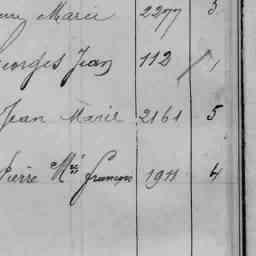 Marie 2277 5
Georges Jean 112 1
Jean Marie 2161 5
Pierre Mie François 1911 4